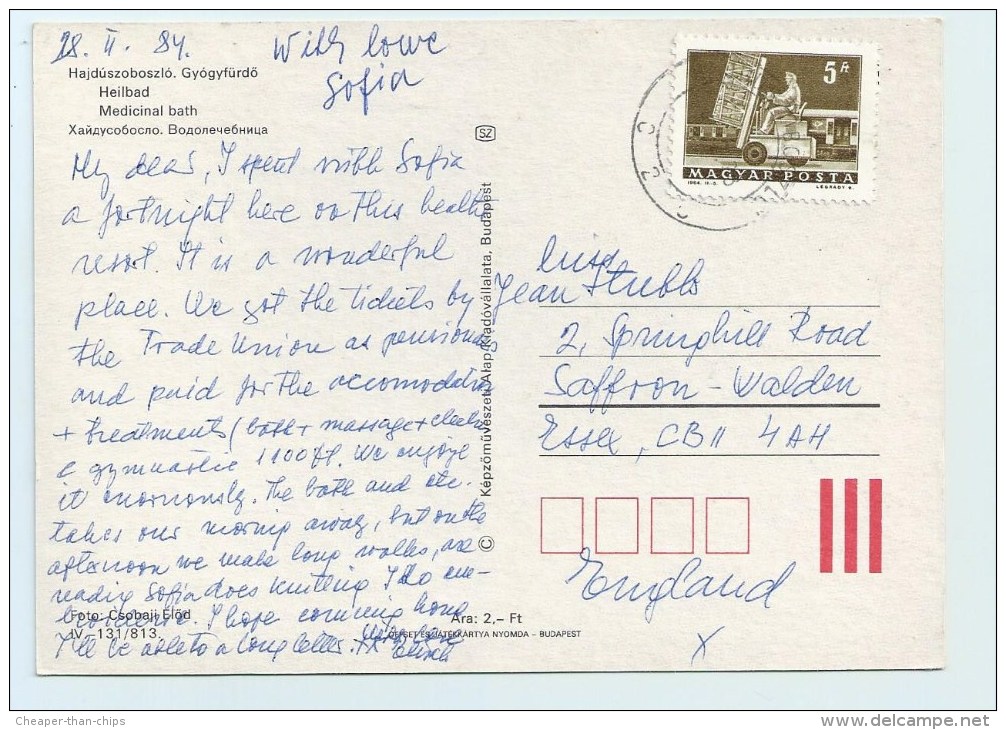 28. II. 84.
With love
Sofia
Hajdúszoboszló. Gyógyfürdő
Heilbad
Medicinal bath
Хайдусобосло. Водолечебница
My dear, I spent with Sofia
a fortnight here on this health
resort. It is a wonderful
place. We got the tickets by
the Trade Union as pensioners
and paid for the accomodation
+ treatments (bath + massage +
gymnastic 1100 Ft. We enjoye
it enormously. The bath and etc.
takes our morning away, but on the
afternoon we make long walks, are
reading Sofia does knitting I do em-
broiderie. I hope comming home
I'll be able to a long letter.
Foto: Csobaji Előd
IV-131/813.
Ara: 2,- Ft
OFFSET ÉS JÁTÉKKÁRTYA NYOMDA - BUDAPEST
© Képzőművészeti Alap Kiadóvállalata, Budapest
SZ
5 Ft
MAGYAR POSTA
1964. LÉGRÁDY S.
Jean Stubbs
2, Springhill Road
Saffron-Walden
Essex, CB11 4AH
England
X
Cheaper-than-chips
delcampe.net